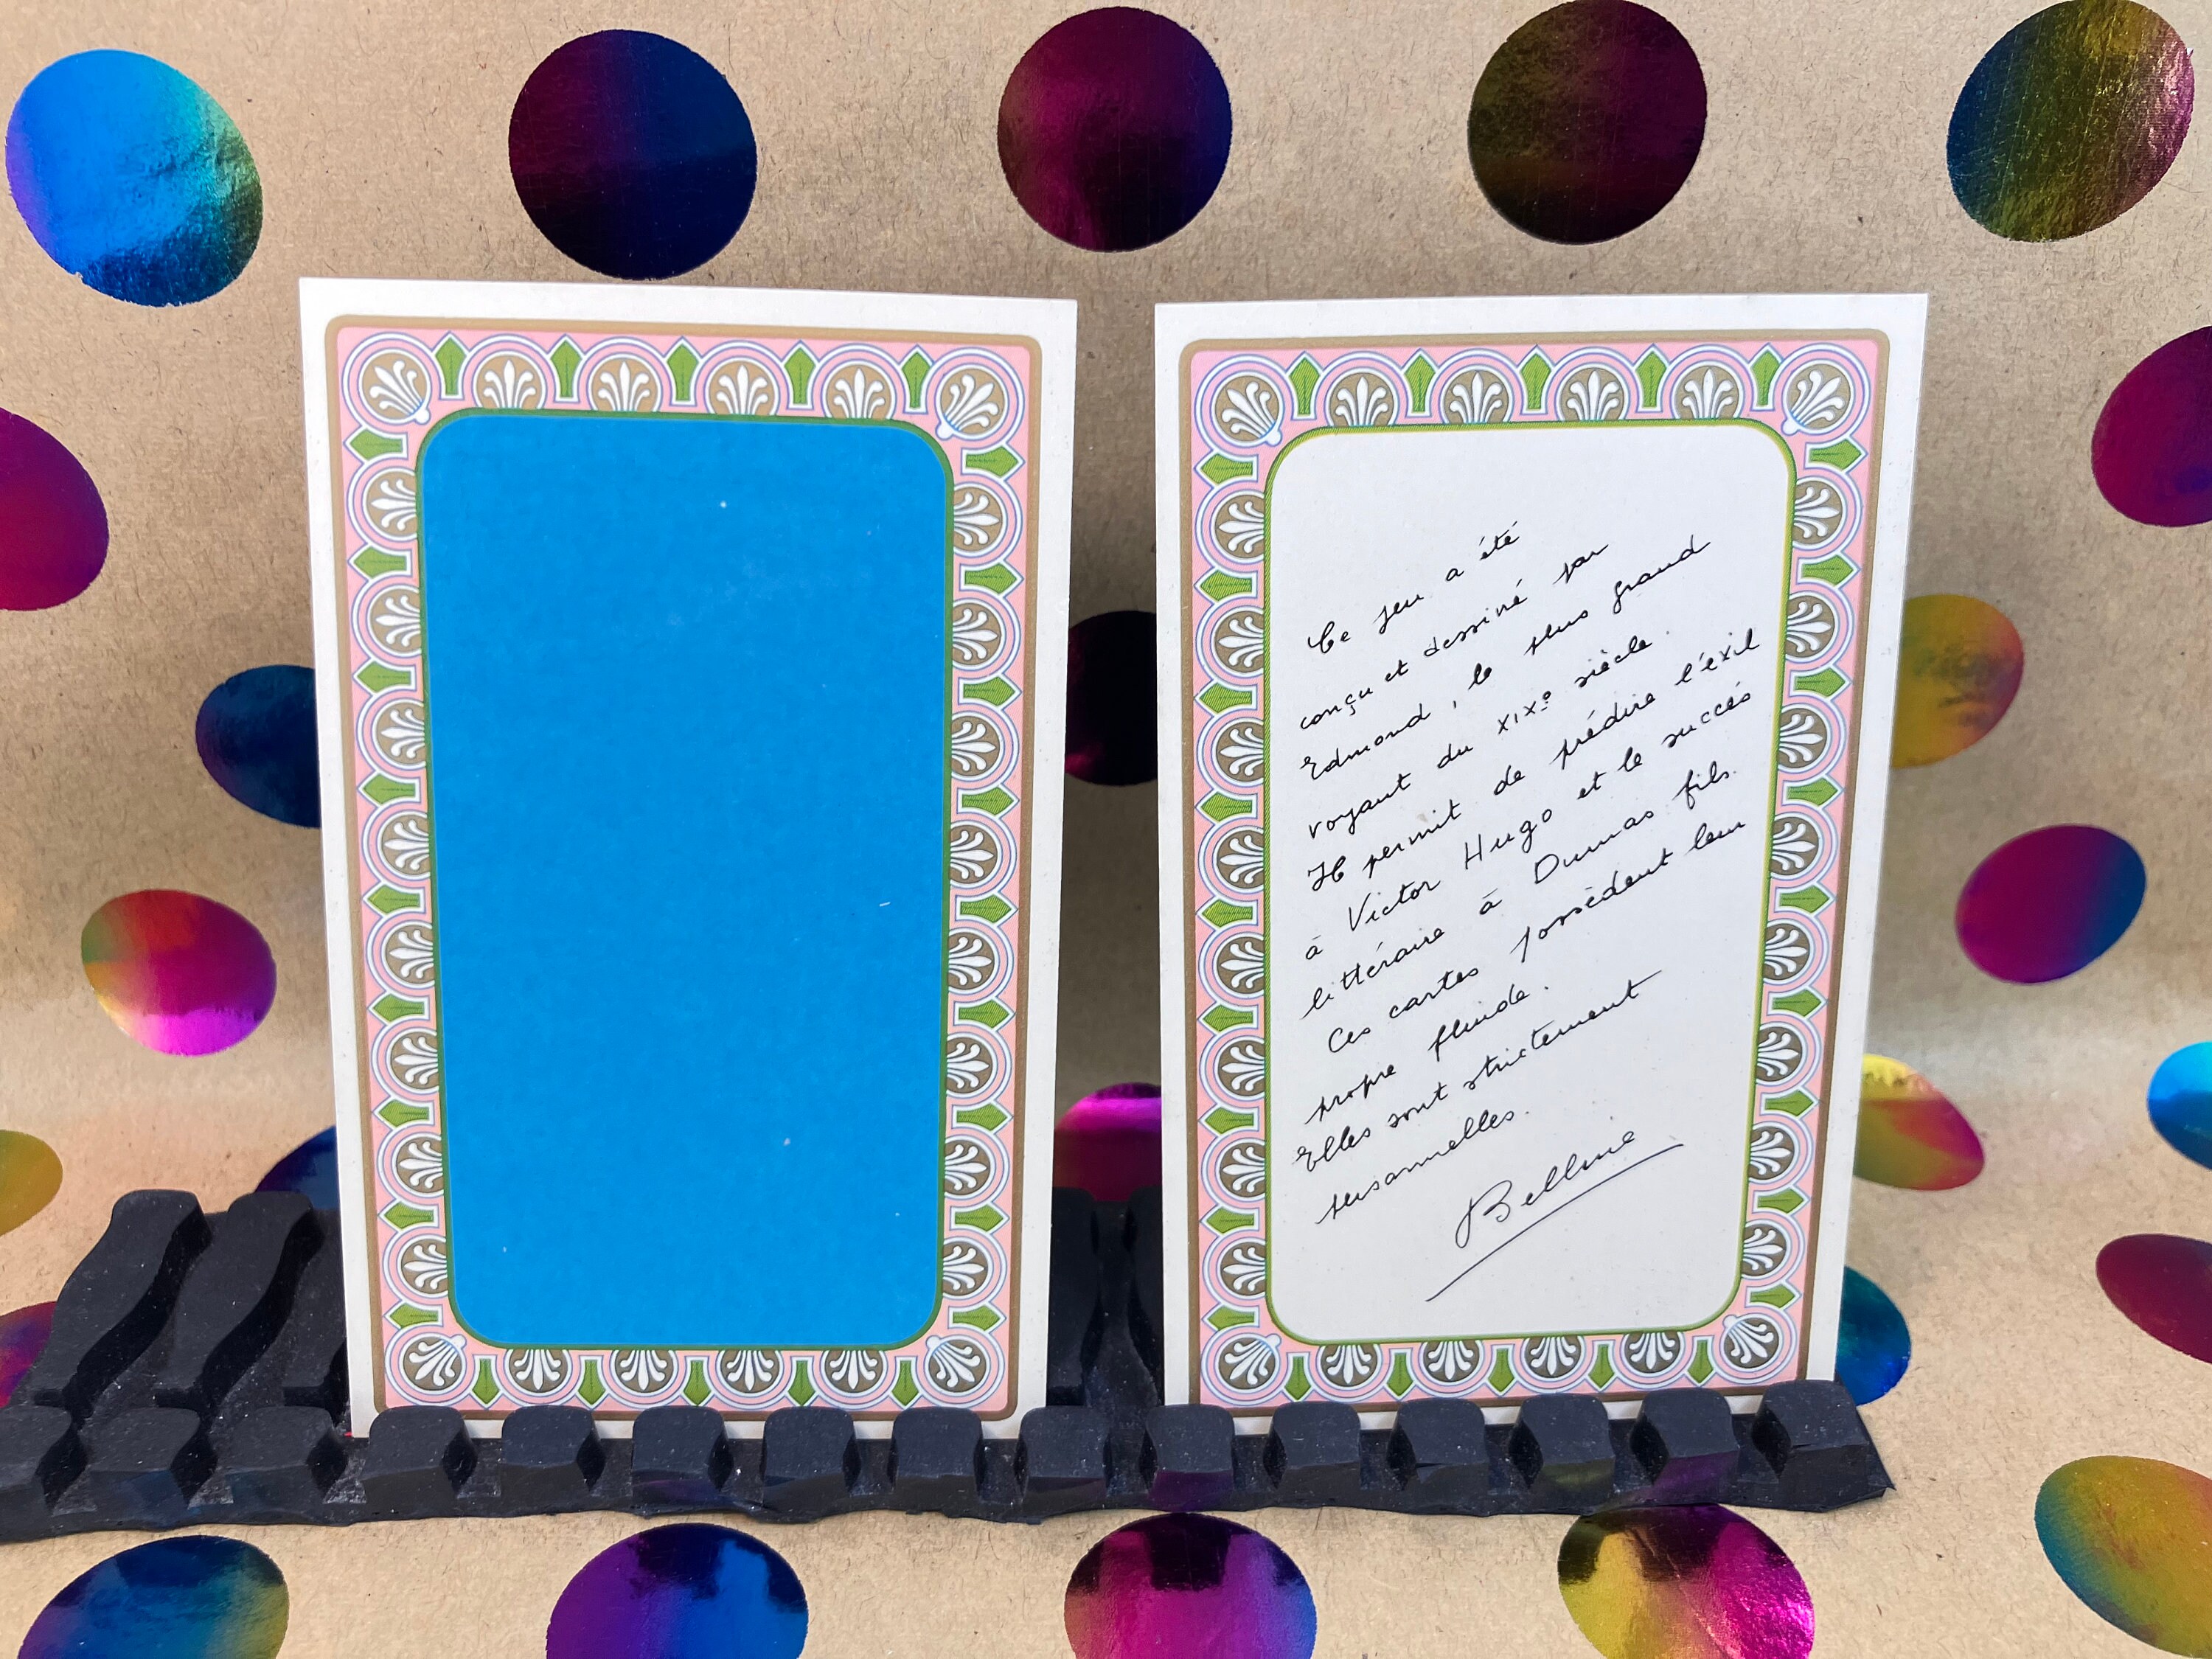 Ce jeu a été
conçu et dessiné par
Edmond, le plus grand
voyant du XIXe siècle.
Il permit de prédire l'éxil
à Victor Hugo et le succés
littéraire à Dumas fils.
Ces cartes possèdent leur
propre fluide.
Elles sont strictement
personnelles.
Belline